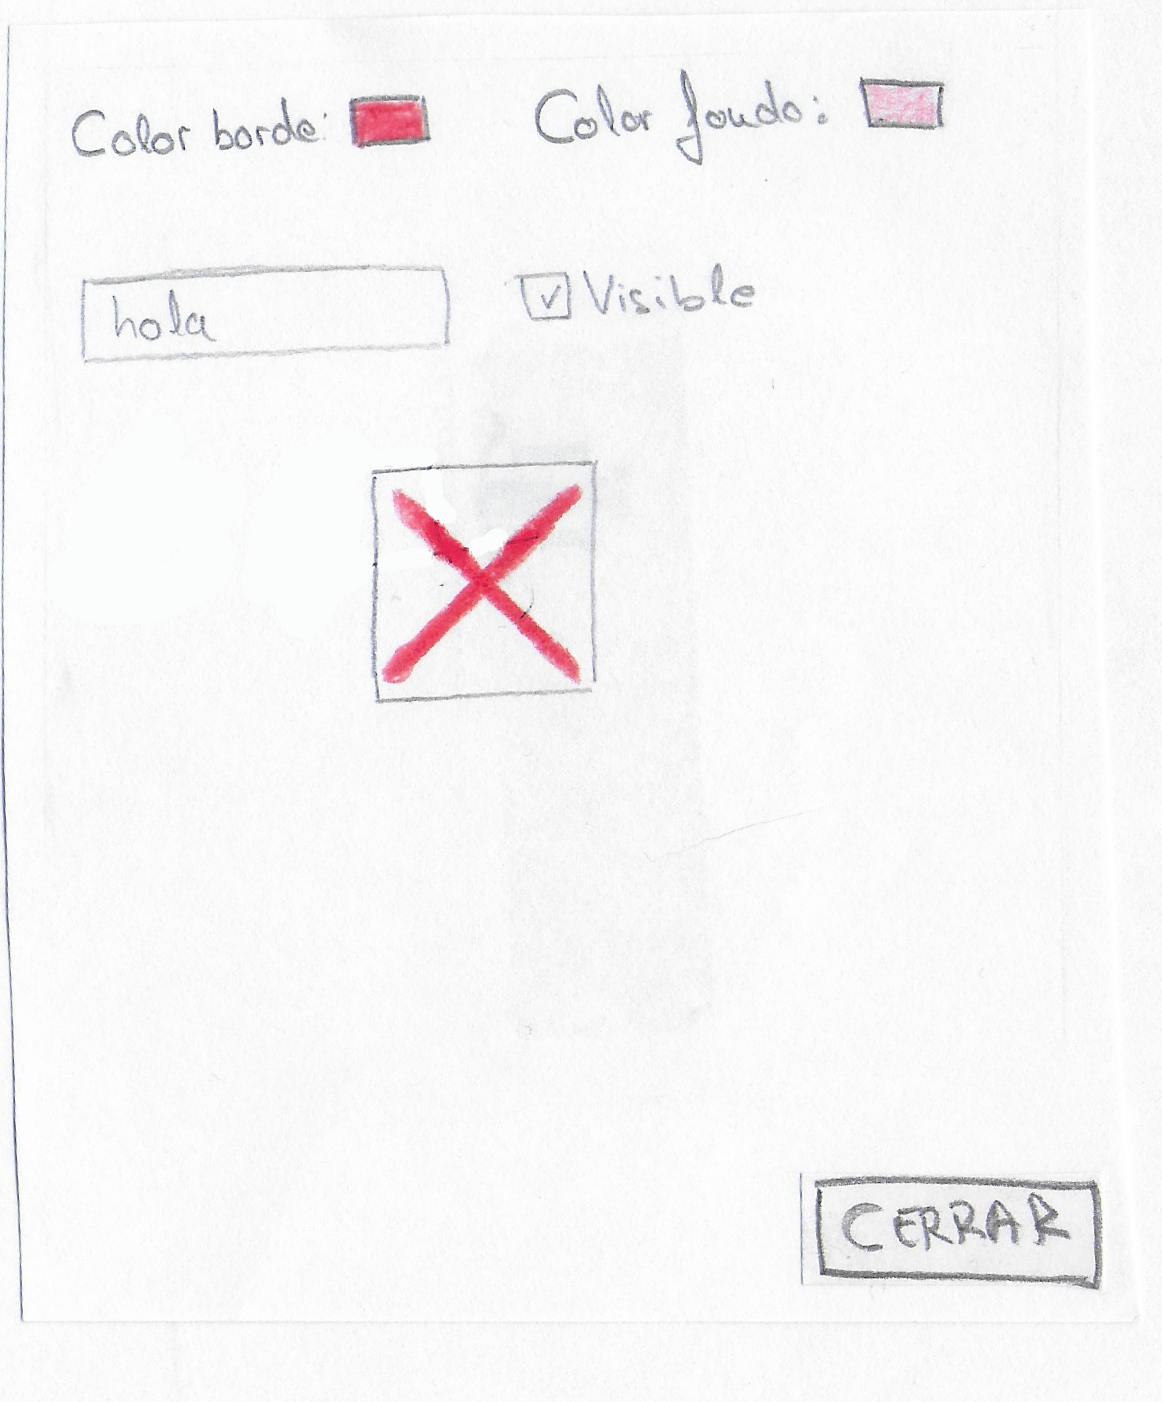 Color borde: Color fondo:
hola Visible
CERRAR